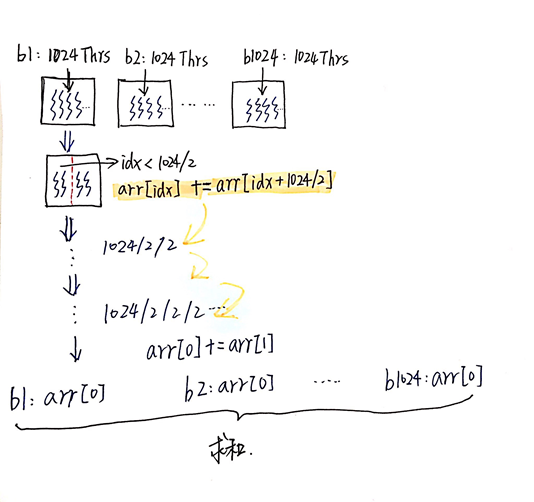 b1: 1024 Thrs b2: 1024 Thrs b1024: 1024 Thrs
... ...
idx < 1024/2
arr[idx] += arr[idx+1024/2]
1024/2/2
1024/2/2/2 ...
arr[0] += arr[1]
b1: arr[0] b2: arr[0] ..... b1024: arr[0]
求和.